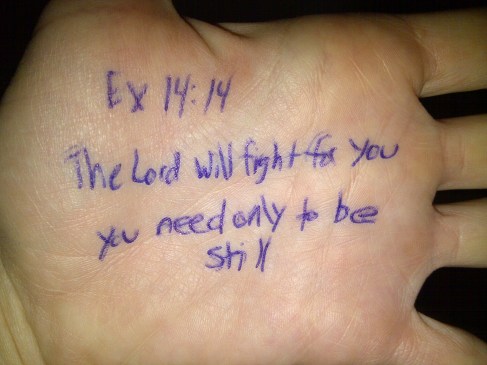 Ex 14:14
The Lord will fight for you
you need only to be
still